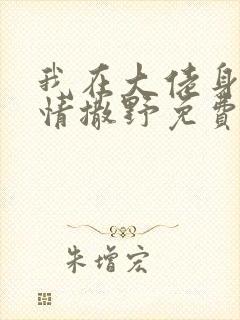 我在大佬身
情撒野免费
朱增宏